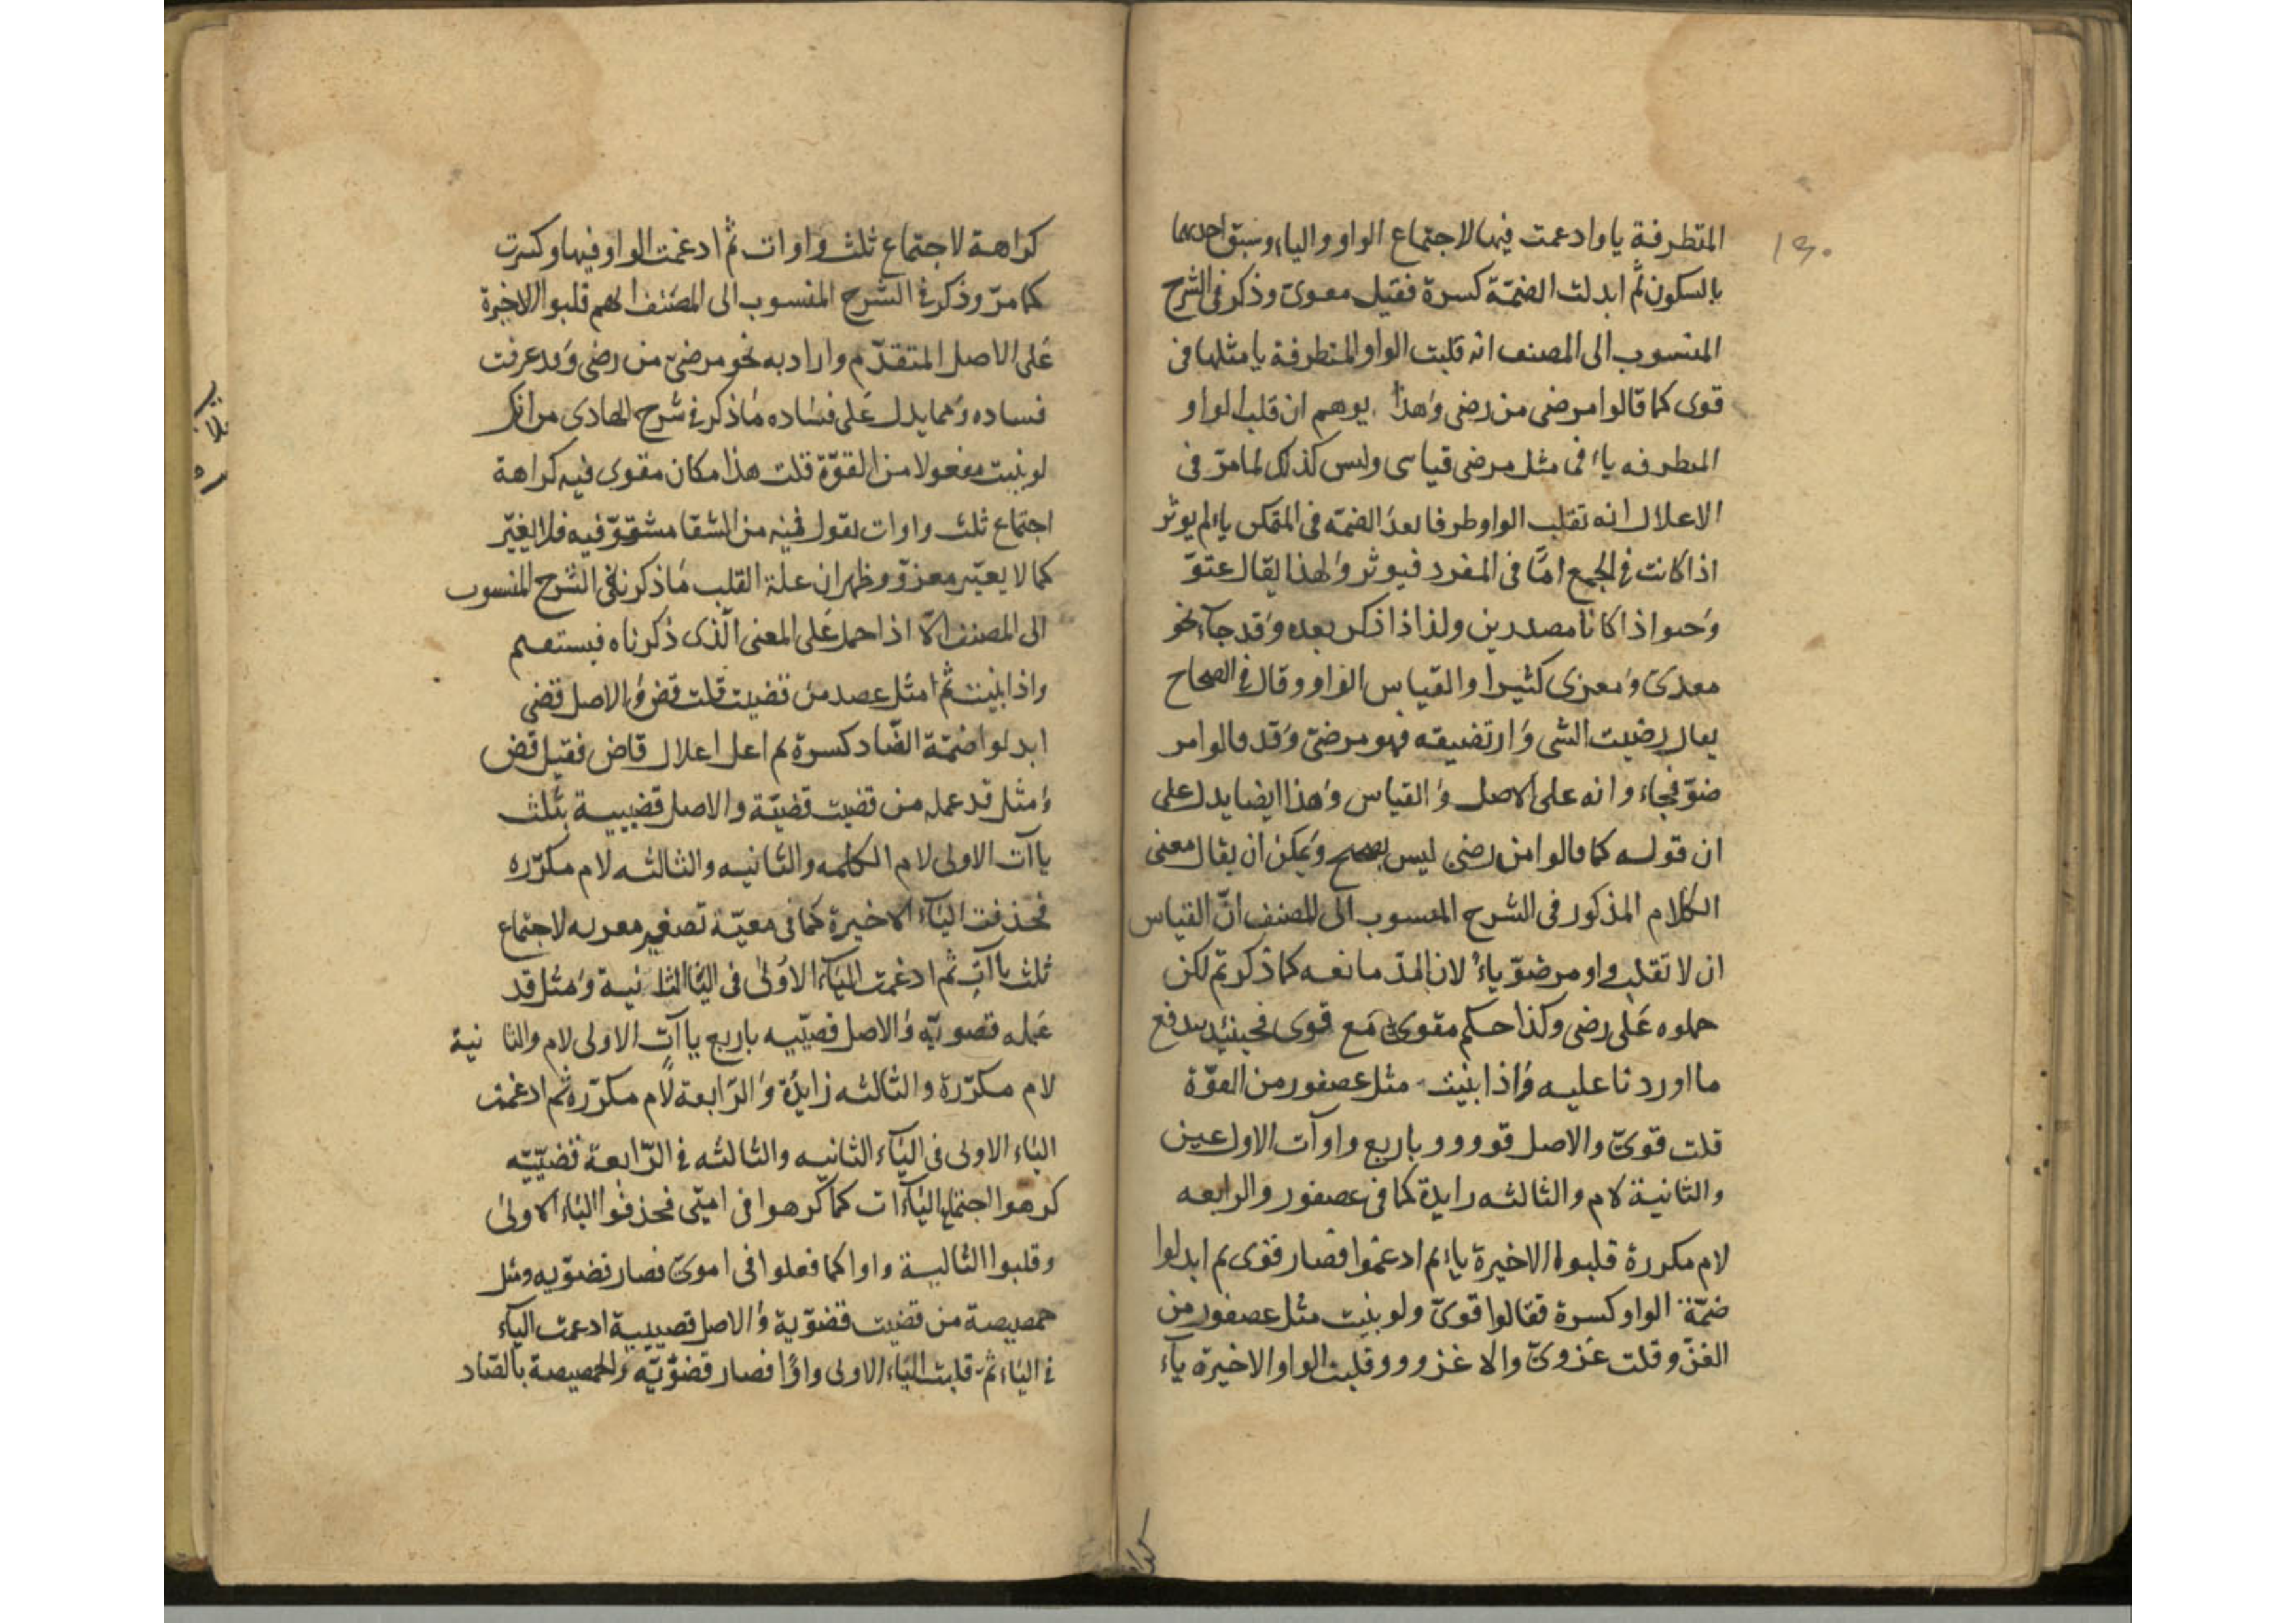 ١٣٠
المتطرفة يا وادعمت فيها لاجتماع الواو والياء وسبق احدىهما
بالسكون ثم ابدلت الضمّة كسرة فقيل معوىّ وذكر فى الشرح
المنسوب الى المصنف انه قلبت الواو المتطرفة يا مثلها فى
قوى كما قالوا مرضى من رضى وهذا يوهم ان قلب الواو
المطرفه ياء فى مثل مرضى قياسى وليس كذلك لما مرّ فى
الاعلال انه تقلب الواو طرفا بعد الضمّه فى المتمكن ياء لم يوثر
اذا كانت فى الجمع امّا فى المفرد فيوثر ولهذا يقال عتوّ
وحىوا اذا كانا مصدرين ولذا اذا ذكر بعده وقد جآء نحو
معدىّ ومعزى كثيرا والقياس الواو وقال فى الصحاح
يعال رضيت الشى وارتضيته فهو مرضىّ وقد قالوا مر
ضوّ فجاء وانه على الاصل والقياس وهذا ايضا يدل على
ان قوله كما قالوا من رضى ليس بصحيح ويمكن ان يقال معنى
الكلام المذكور فى الشرح المنسوب الى المصنف انّ القياس
ان لا تقلب واو مرضوّ ياء لان المدّ مانعه كما ذكر تم لكن
حملوه على رضى وكذا حكم مقوىّ مع قوى فحينئذ يندفع
ما اوردنا عليه واذا بنيت مثل عصفور من القوّة
قلت قوىّ والاصل قوووو باربع واوآت الاول عين
والثانية لام والثالثه زايدة كما فى عصفور والرابعه
لام مكررة قلبوا الاخيرة ياء ثم ادعموا فصار قوى ثم ابدلوا
ضمّة الواو كسرة فقالوا قوىّ ولو بنيت مثل عصفور من
الغزو قلت غزوىّ والا غزووو وقلبت الواو الاخيرة يآء
كراهة لاجتماع ثلث واوات ثم ادغمت الواو فيها وكسرت
كما مرّ وذكر فى الشرح المنسوب الى المصنف انهم قلبوا الاخيرة
على الاصل المتقدّم واراد به نحو مرضىّ من رضى وقد عرفت
فساده ومما يدل على فساده ما ذكر فى شرح الهادى من انك
لو بنيت مفعولا من القوّة قلت هذا مكان مقوى فيه كراهة
اجتماع ثلث واوات تقول فيه من الشقا مشقوّ فيه فلا يغيّر
كما لا يعيّر معزوّ وظهر ان علة القلب ما ذكرنا فى الشرح المنسوب
الى المصنف الّا اذا حمل على المعنى الّذى ذكرناه فيستقىم
واذا بنيت ثم مثل عصد من قضيت قلت قض والاصل قضى
ابدلوا ضمّة الضّاد كسرة ثم اعل اعلال قاض فقيل قض
ومثل قدعمله من قضيت قضيّة والاصل قضييية بثلث
ياآت الاولى لام الكلمه والثانيه والثالثه لام مكرّره
فحذفت اليآء الاخيرة كما فى معيّة تصغير معويه لاجتماع
ثلث ياآت ثم ادغمت اليآء الاولى فى اليآ الثانية ومثل قد
عمله قضويّه والاصل قضيّييه باربع ياآت الاولى لام والثا نية
لام مكرّرة والثالثه زايدة والرّابعة لام مكرّرة ثم ادغمت
الياء الاولى فى اليآء الثانيه والثالثه فى الرّابعة قضيّيّه
كرهوا اجتماع اليآات كما كرهوا فى اميّى فحذفوا الياء الاولى
وقلبوا الثالىة واوا كما فعلوا فى اموىّ فصار قضوّيه ومثل
حمصيصة من قضيت قضوّية والاصل قصييية ادعمت اليآء
فى الياء ثم قلبت الياء الاولى واوًا فصار قضوّيّه والحمصيصة بالصّاد